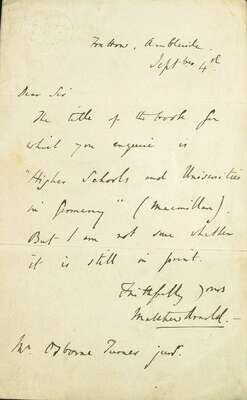 Fox How, Ambleside.
Septber 4th
Dear Sir
The title of the book for
which you enquire is
"Higher Schools and Universities
in Germany" (Macmillan).
But I am not sure whether
it is still in print.
Faithfully yours
Matthew Arnold.—
Mr. Osborne Turner junr.